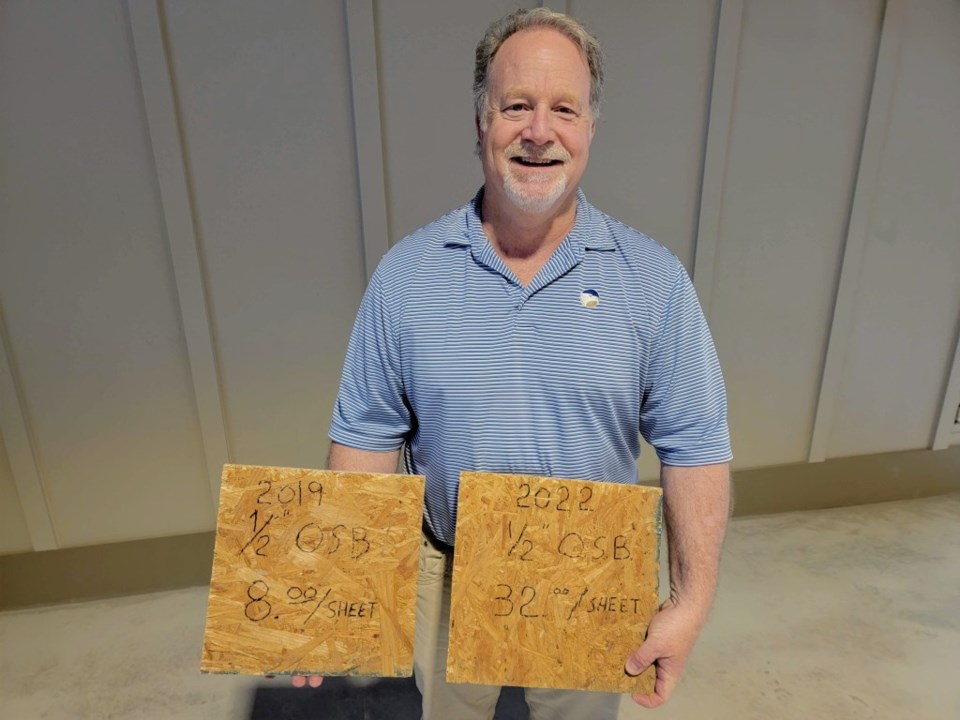 2019
1/2" OSB
8.00/SHEET
2022
1/2" O.S.B.
32.00/SHEET